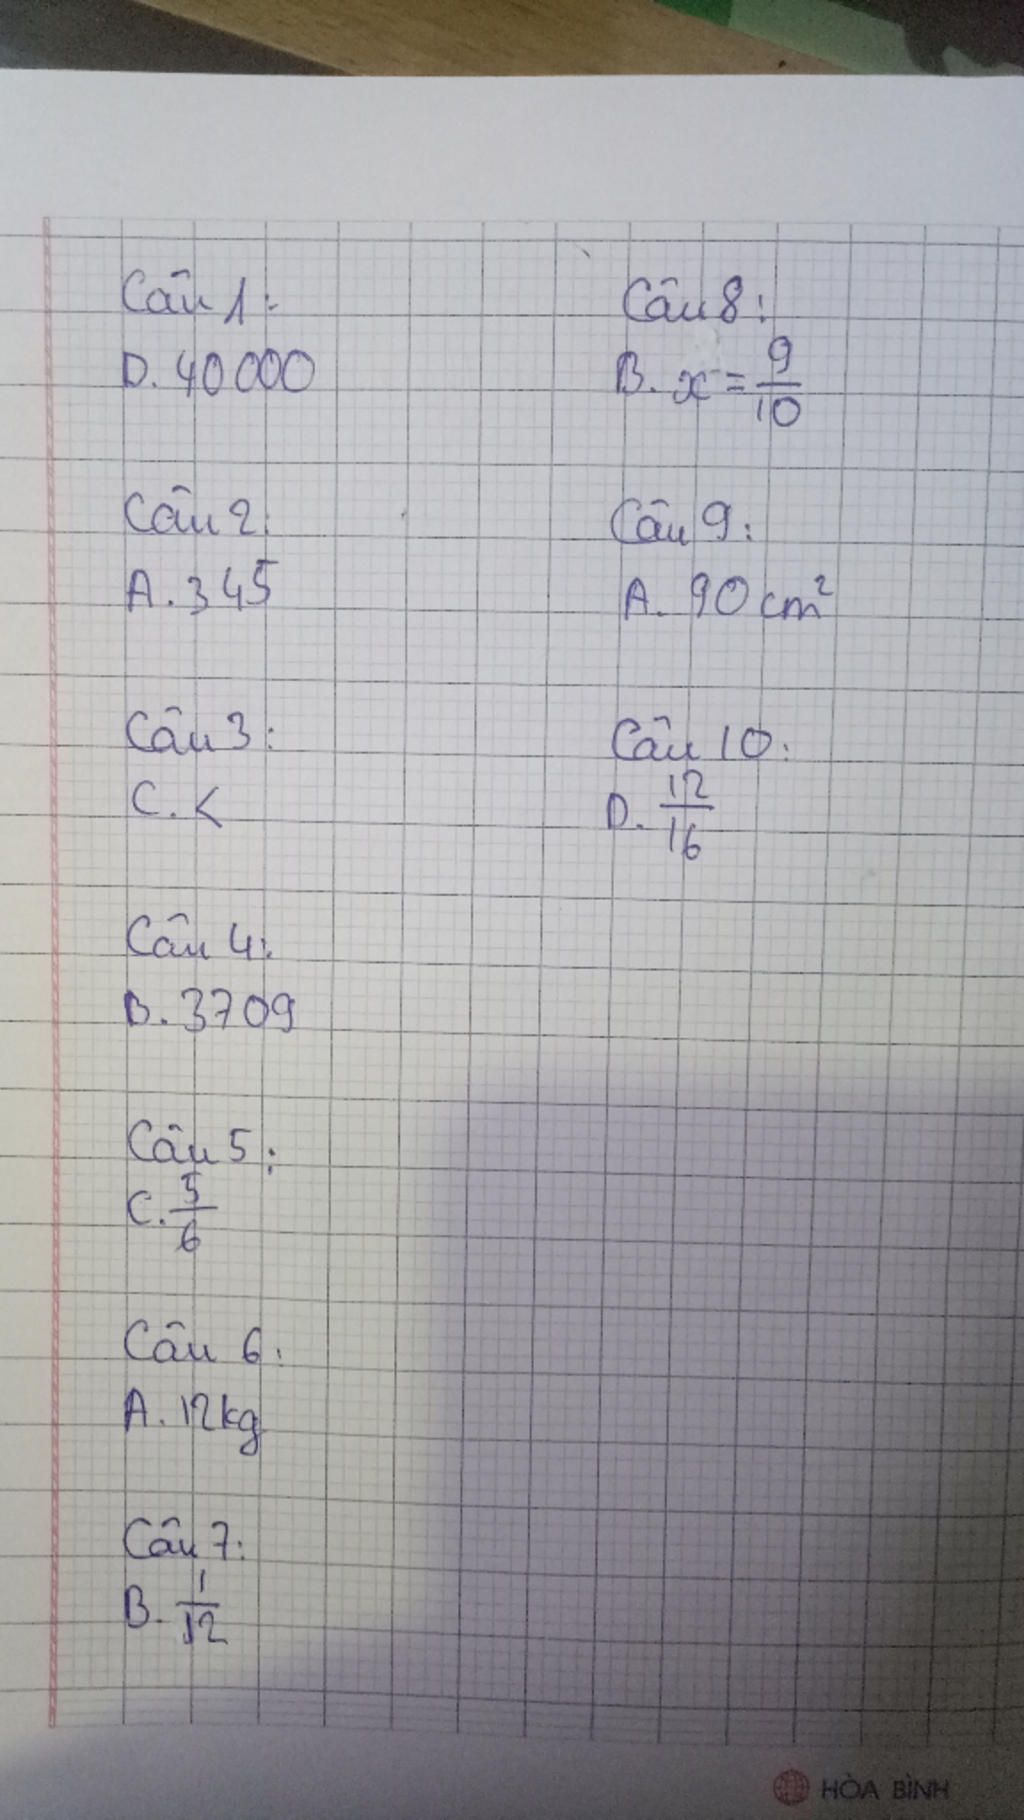 Câu 1:
D. 40 000
Câu 2:
A. 345
Câu 3:
C. <
Câu 4:
B. 3709
Câu 5:
C. 5/6
Câu 6:
A. 12kg
Câu 7:
B. 1/12
Câu 8:
B. x = 9/10
Câu 9:
A. 90 cm²
Câu 10:
D. 12/16
HÒA BÌNH